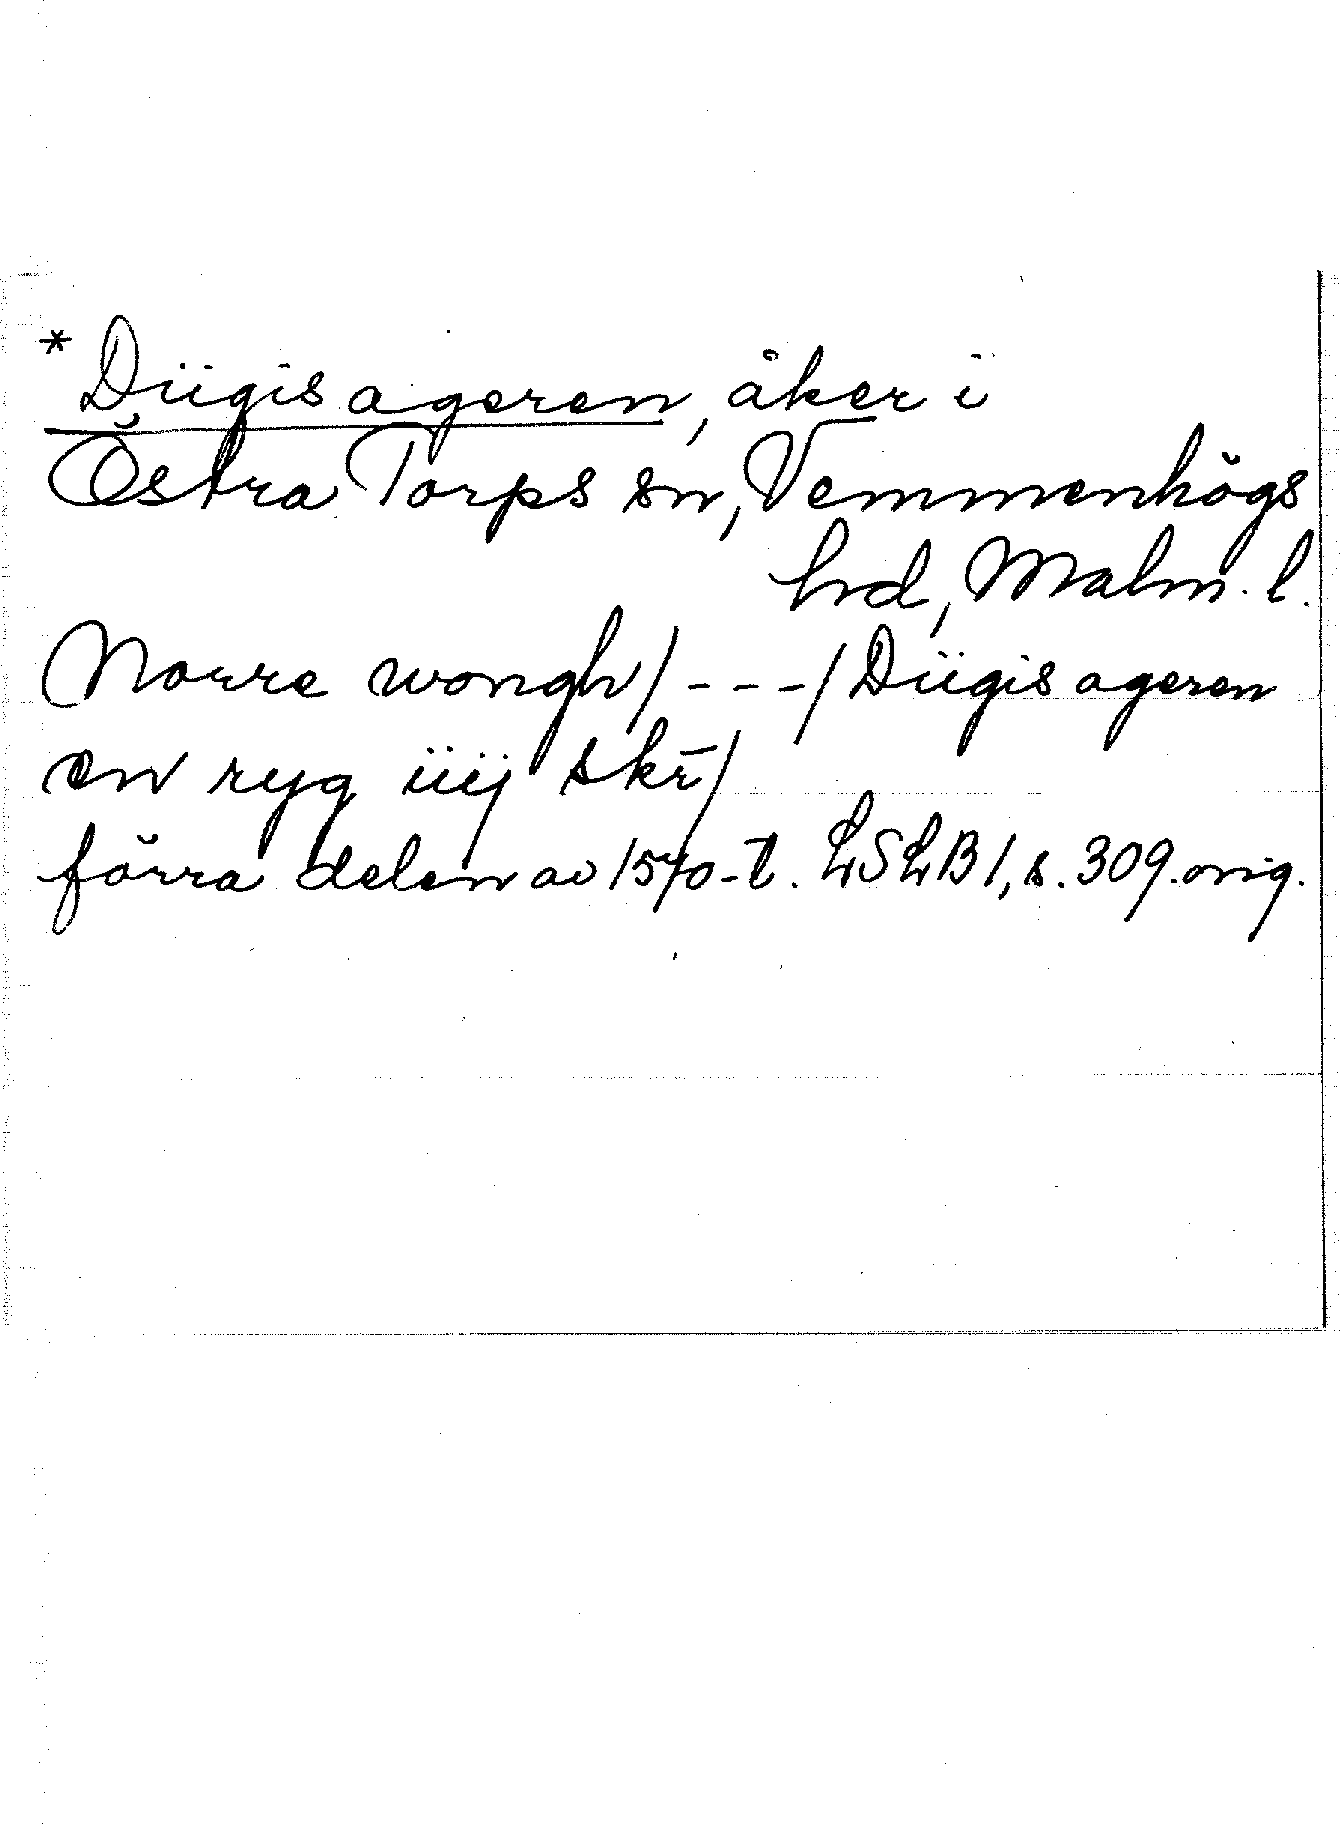 * Diigis ageren, åker i
Östra Torps sn, Vemmenhögs
hd, Malm. l.
Norre wongh/ - - -/ Diigis ageren
en ryg iiij skr̄/
förra delen av 1570-t. LSLB 1, s. 309. orig.